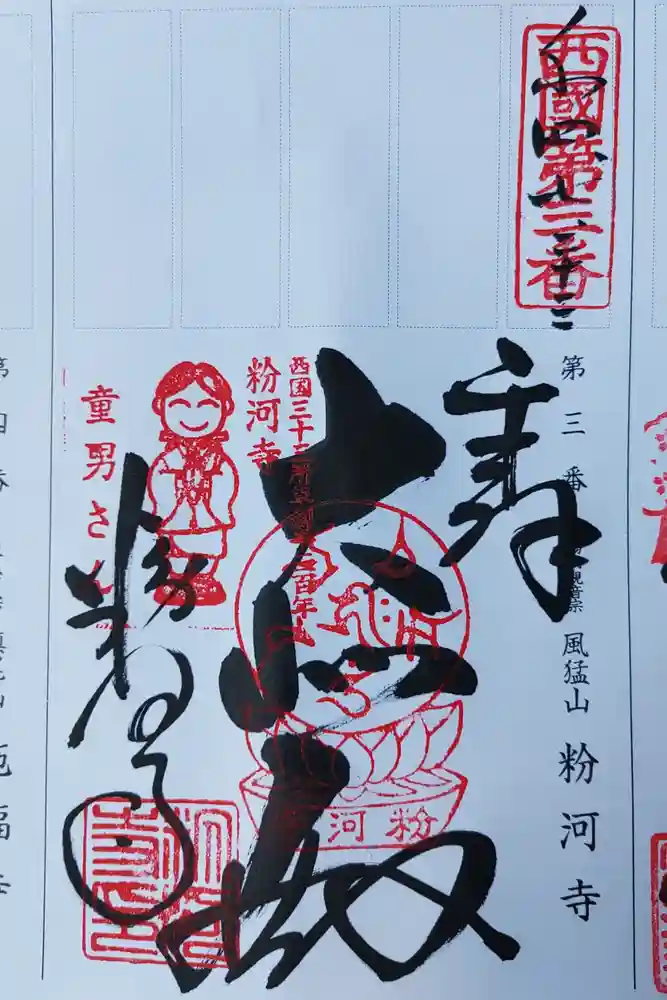 西國第三番
第三番 観音宗 風猛山 粉河寺
奉拝
大悲殿
粉河
西国三十三所草創千三百年
粉河寺
童男さん
粉河寺